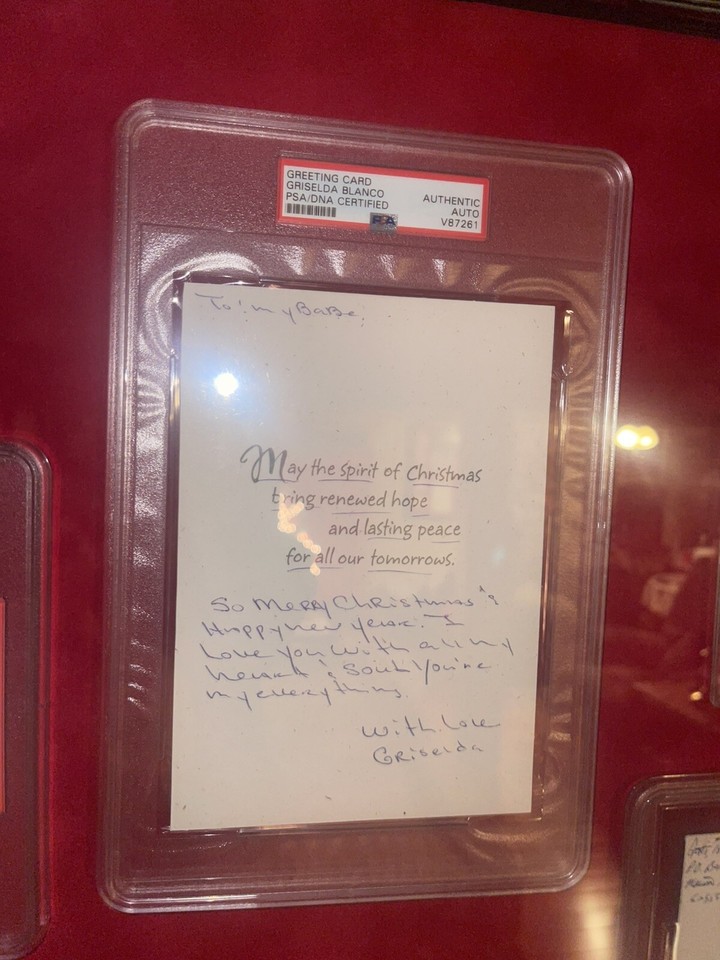 GREETING CARD
GRISELDA BLANCO
PSA/DNA CERTIFIED
AUTHENTIC
AUTO
V87261
To! my BaBe
May the spirit of Christmas
bring renewed hope
and lasting peace
for all our tomorrows.
So Merry Christmas &
Happy new year. I
Love you with all my
heart & Soul You're
my everything.
With Love
Griselda